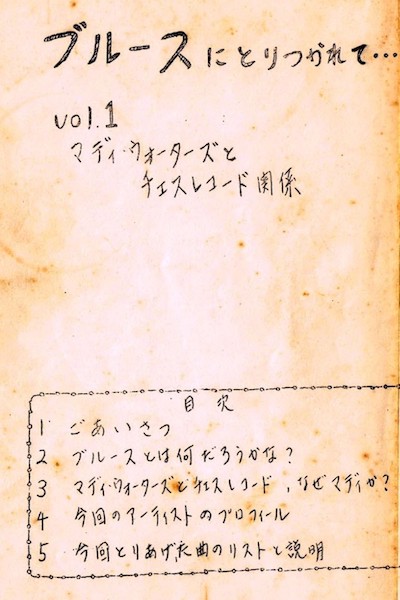 ブルースにとりつかれて…
vol.1
マディ・ウォーターズと
チェスレコード関係
目次
1 ごあいさつ
2 ブルースとは何だろうかな?
3 マディ・ウォーターズとチェスレコード、なぜマディか?
4 今回のアーティストのプロフィール
5 今回とりあげた曲のリストと説明